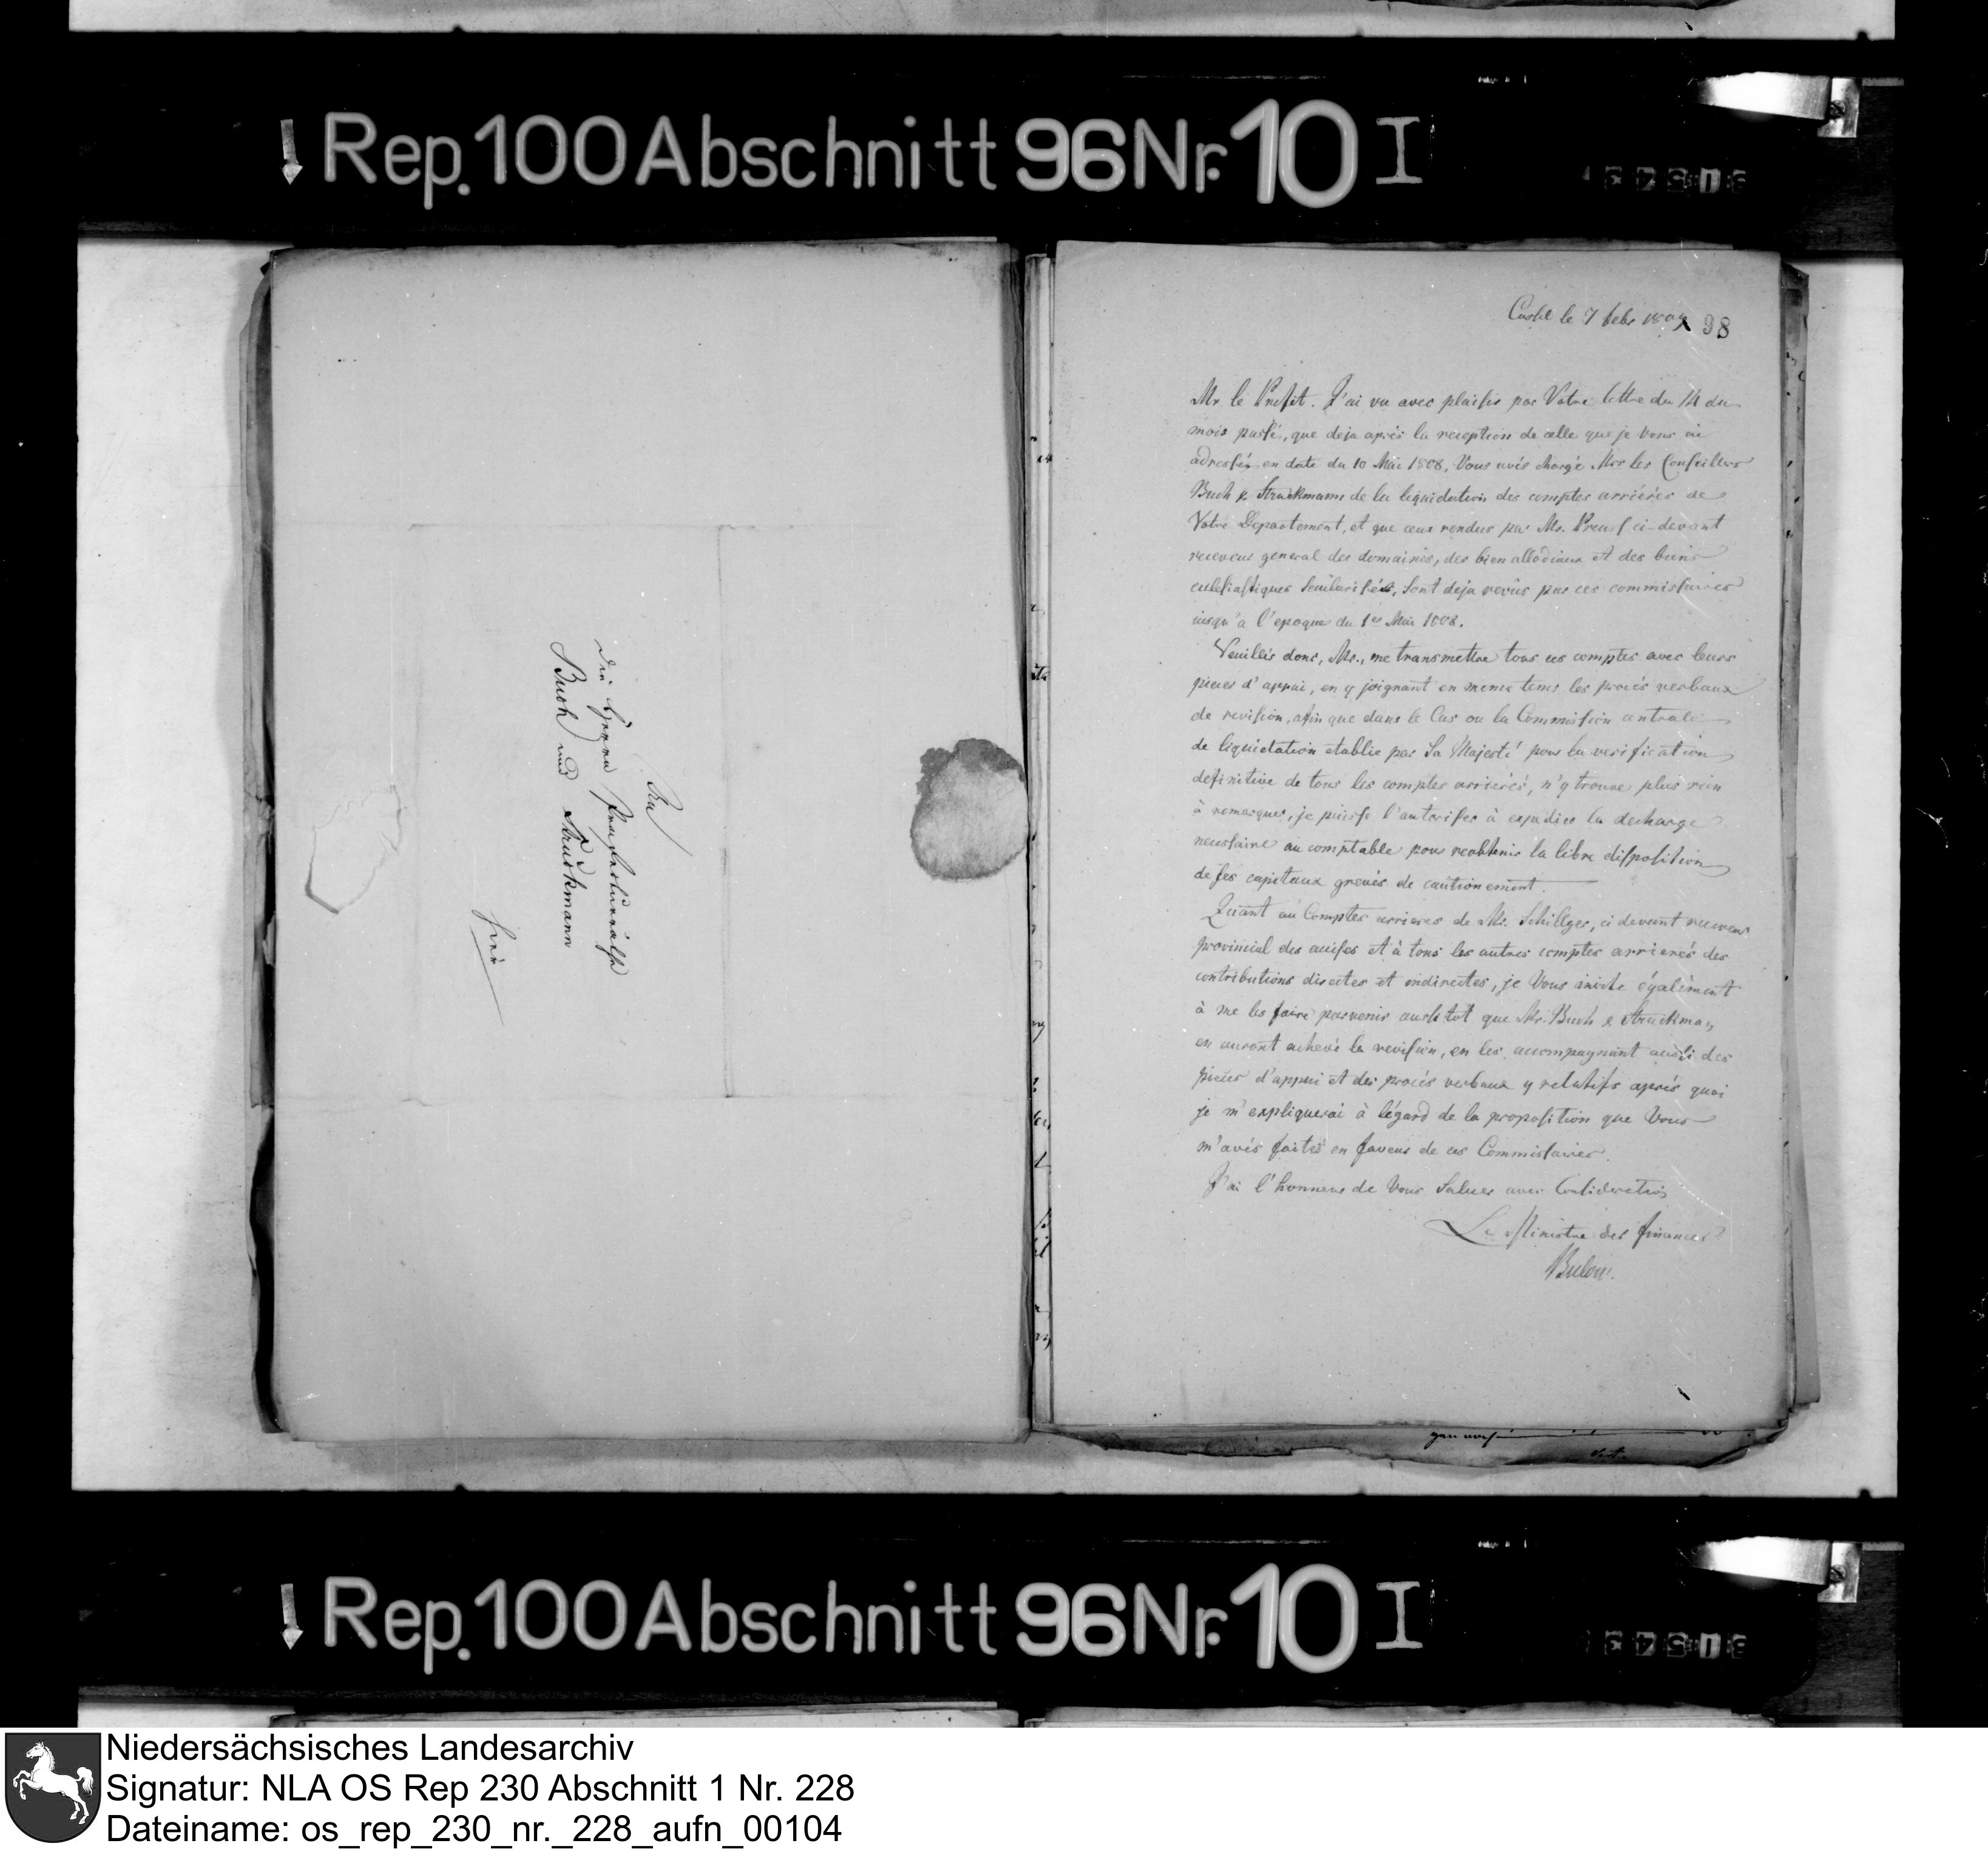 Rep. 100 Abschnitt 96 Nr. 10 I
An
die Herren Praefecturräthe
Buch und Struckmann
frei
Cassel le 7 febr 1809
98
Mr le Préfet. J'ai vu avec plaisir par Votre lettre du 14 du
mois passé, que deja après la reception de celle que je Vous ai
adressée en date du 10 Mai 1808, Vous avés chargé Mrs les Conseillers
Buch & Struckmann de la liquidation des comptes arriérés de
Votre Departement, et que ceux rendus par Mr. Preuss ci-devant
receveur general des domaines, des bien allodiaux et des biens
eclesiastiques secularisés, sont deja revûs par ces commissaires
iusqu'a l'epoque du 1er Mai 1808.
Veuillés donc, Mr., me transmettre tous ces comptes avec leurs
pieces d'appui, en y joignant en meme tems les procés verbaux
de revision, afin que dans le Cas ou la Commission centrale
de liquidation etablie par Sa Majesté pour la verification
definitive de tous les comptes arriérés, n'y trouve plus rien
à remarquer, je puisse l'autoriser à expedier la decharge
necessaire au comptable pour reobtenir la libre disposition
de ses capitaux grevés de cautionement.
Quant au Comptes arrieres de Mr. Schillger, ci devant receveur
provincial des accises et à tous les autres comptes arrierés des
contributions directes et indirectes, je Vous invite également
à me les faire parvenir aussitot que Mr. Buch & Struckman
en auront achevé la revision, en les accompagnant aussi des
pieces d'appui et des procés verbaux y relatifs après quoi
je m'expliquerai à légard de la proposition que Vous
m'avés faites en faveur de ces Commissaires.
J'ai l'honneur de Vous saluer avec Consideration
Le Ministre des finances
Bulow.
Rep. 100 Abschnitt 96 Nr. 10 I
Niedersächsisches Landesarchiv
Signatur: NLA OS Rep 230 Abschnitt 1 Nr. 228
Dateiname: os_rep_230_nr._228_aufn_00104